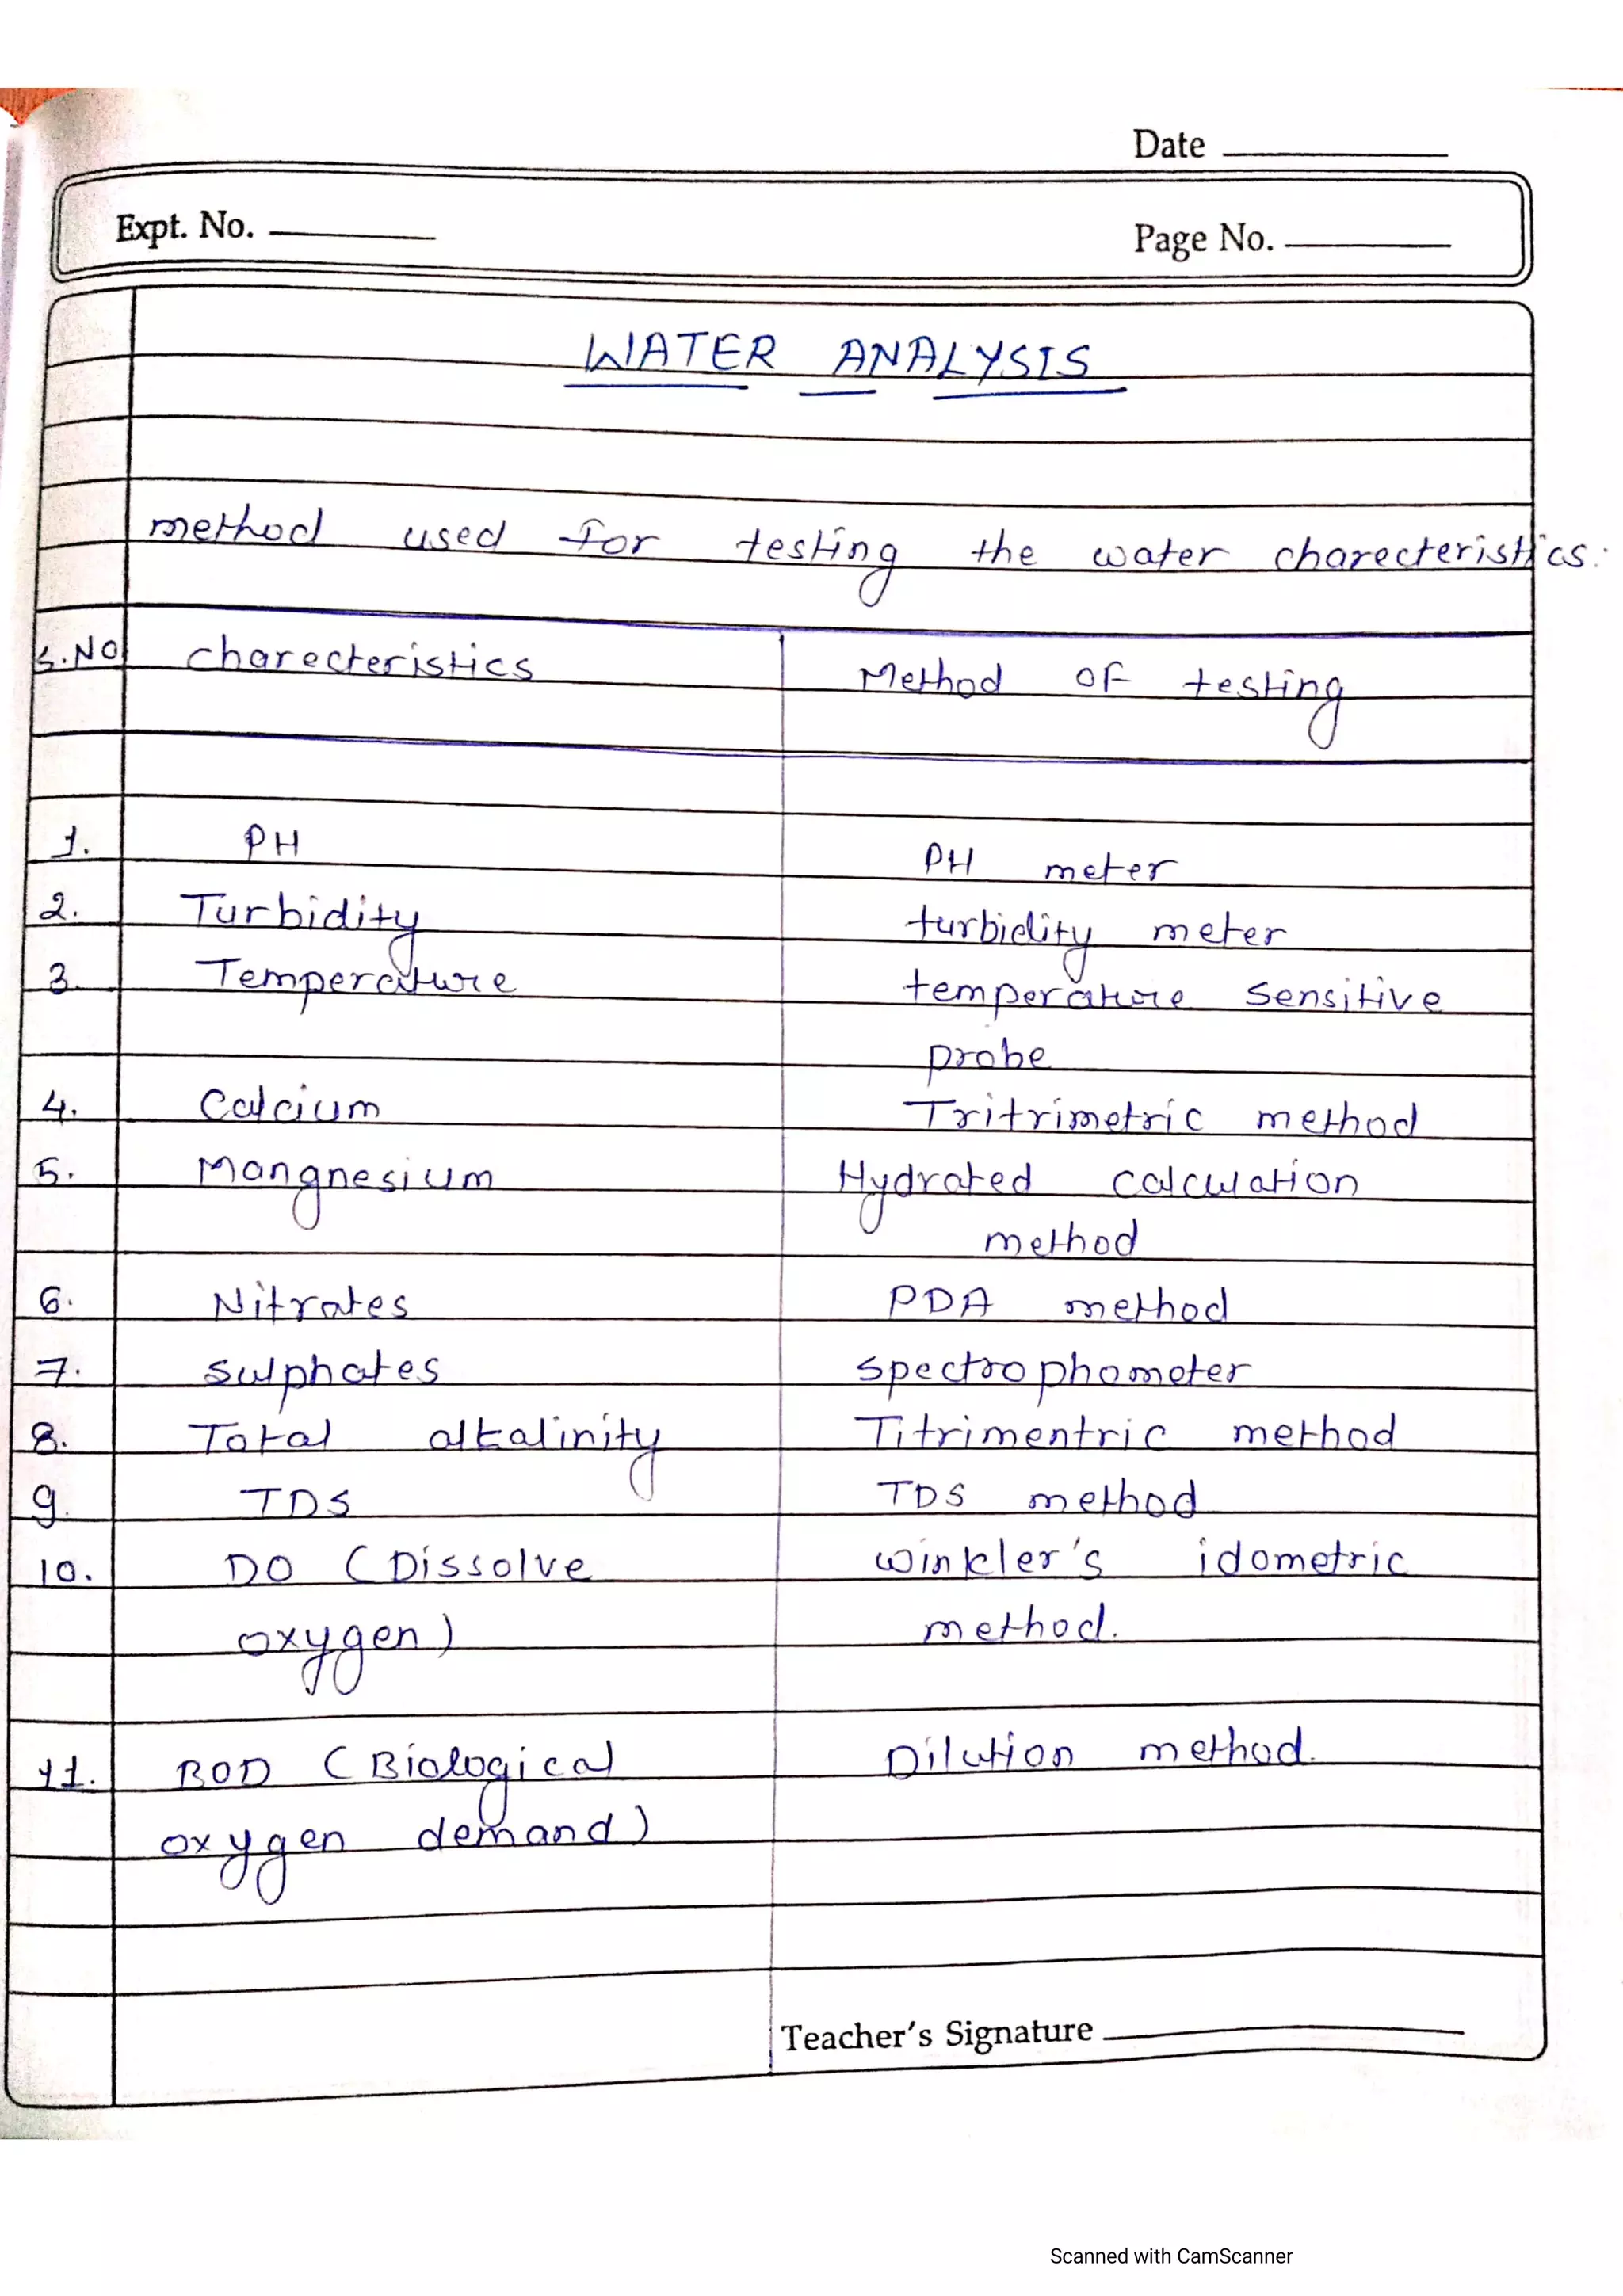 Date
Expt. No.
Page No.
WATER ANALYSIS
method used for testing the water charecteristics:
S.NO charecteristics Method OF testing
1. PH PH meter
2. Turbidity turbidity meter
3. Temperature temperature sensitive
probe
4. Calcium Tritrimetric method
5. Mangnesium Hydrated calculation
method
6. Nitrates PDA method
7. Sulphates spectrophometer
8. Total alkalinity Titrimentric method
9. TDS TDS method
10. DO (Dissolve winkler's idometric
oxygen) method.
11. BOD (Biological Dilution method.
oxygen demand)
Teacher's Signature
Scanned with CamScanner